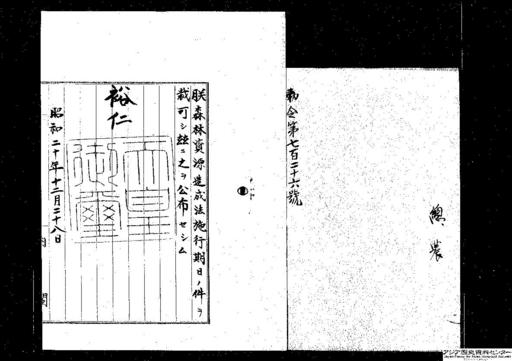 勅令第七百二十六號
總、農
朕森林資源造成法施行期日ノ件ヲ
裁可シ玆ニ之ヲ公布セシム
裕仁
天皇
御璽
昭和二十年十二月二十八日
内 閣
アジア歴史資料センター